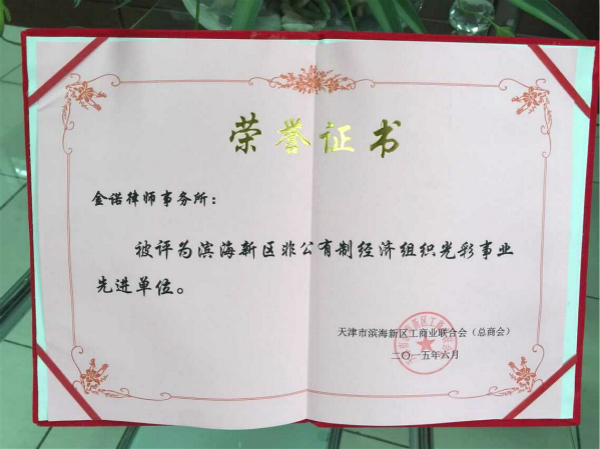 荣誉证书
金诺律师事务所：
被评为滨海新区非公有制经济组织光彩事业
先进单位。
天津市滨海新区工商业联合会（总商会）
二〇一五年六月